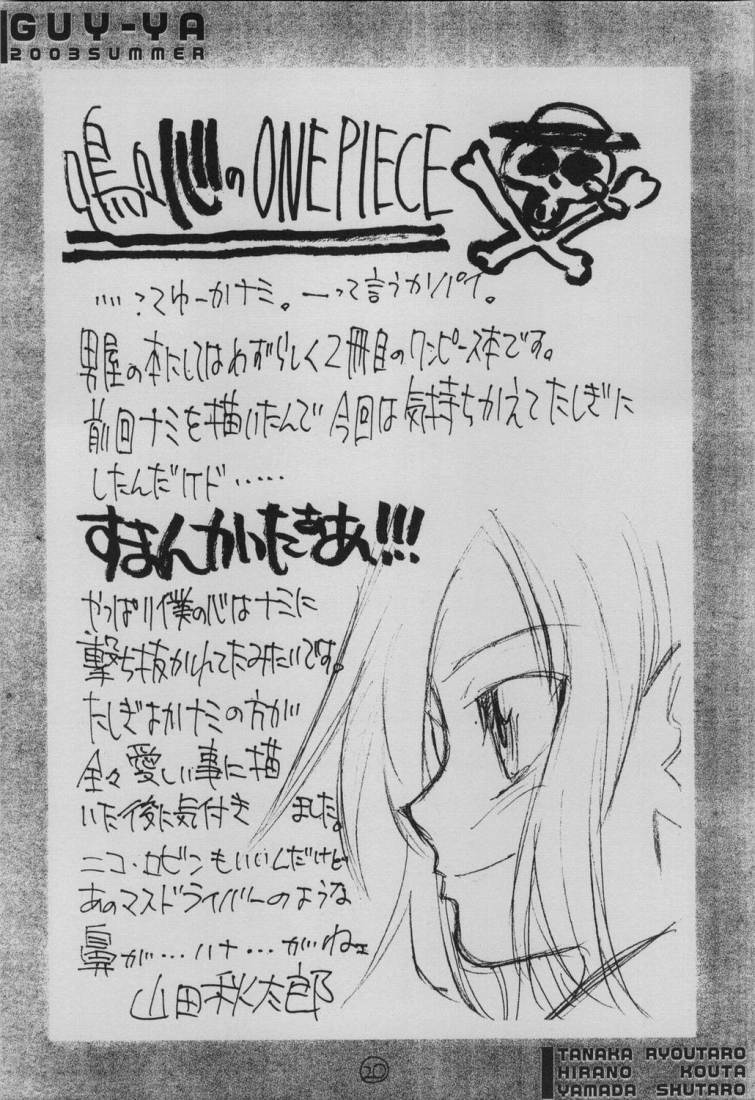 GUY-YA
2003SUMMER
心の ONE PIECE
男屋の本にしてはめずらしく2冊目のワンピース本です。
前回ナミを描いたんで今回は気持ちかえてたしぎに
したんだけド……
やっぱり僕の心はナミに
撃ち抜かれてたみたいです。
たしぎよかナミの方が
全々愛しい事に描
いた後に気付き ました。
ニコ・ロビンもいいんだけど
あのマスドライバーのような
鼻が…ハナ…がねェ
山田秋太郎
20
TANAKA RYOUTARO
HIRANO KOUTA
YAMADA SHUTARO